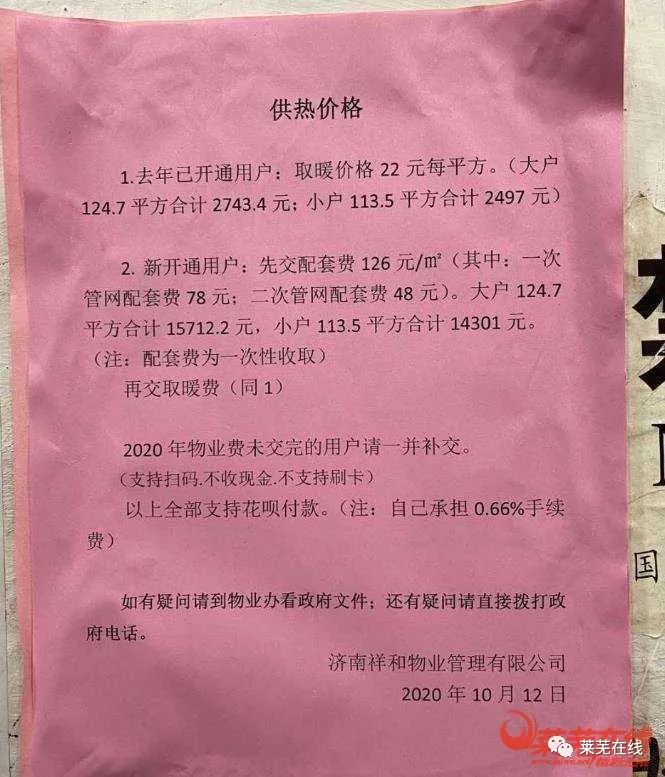 供热价格
1.去年已开通用户：取暖价格 22 元每平方。（大户
124.7 平方合计 2743.4 元；小户 113.5 平方合计 2497 元）
2. 新开通用户：先交配套费 126 元/㎡（其中：一次
管网配套费 78 元；二次管网配套费 48 元）。大户 124.7
平方合计 15712.2 元，小户 113.5 平方合计 14301 元。
（注：配套费为一次性收取）
再交取暖费（同 1）
2020 年物业费未交完的用户请一并补交。
（支持扫码.不收现金.不支持刷卡）
以上全部支持花呗付款。（注：自己承担 0.66%手续
费）
如有疑问请到物业办看政府文件；还有疑问请直接拨打政
府电话。
济南祥和物业管理有限公司
2020 年 10 月 12 日
国
莱芜在线
莱芜在线